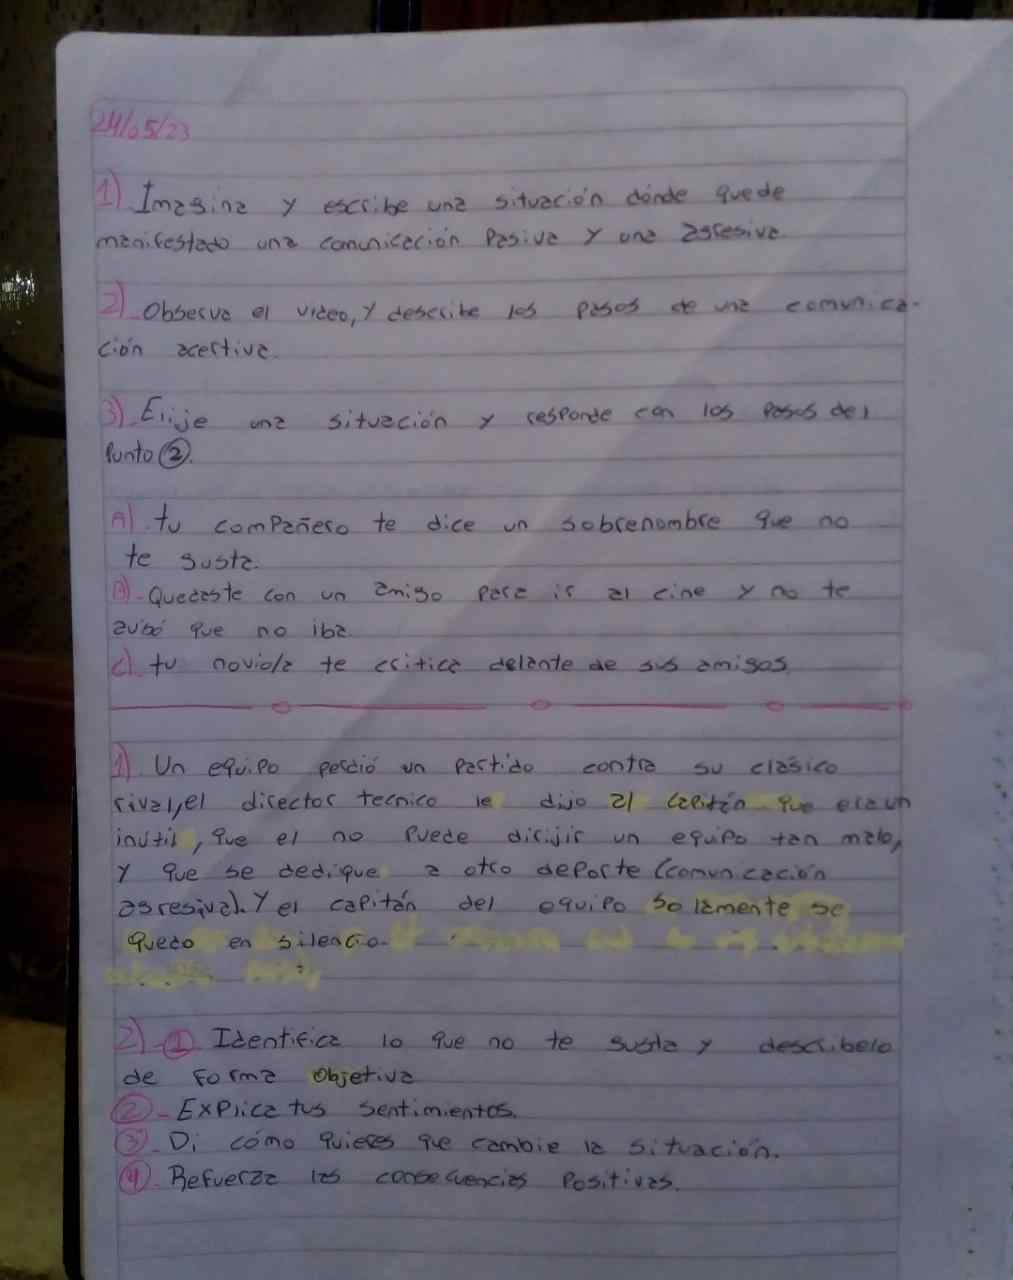 24/05/23
1) Imagina y escribe una situación dónde quede
manifestado una comunicación pasiva y una agresiva.
2) Observa el video, y describe los pasos de una comunica-
ción acertiva.
3) Elije una situación y responde con los pasos del
punto 2.
A) tu compañero te dice un sobrenombre que no
te gusta.
B)- Quedaste con un amigo para ir al cine y no te
avisó que no iba.
C) tu novio/a te critica delante de sus amigos.
1) Un equipo perdió un partido contra su clásico
rival, el director tecnico le dijo al capitán que era un
inútil, que el no puede dirijir un equipo tan malo,
y que se dedique a otro deporte (comunicación
agresiva). Y el capitán del equipo solamente se
quedo en silencio.
2)-1 Identifica lo que no te gusta y describelo
de forma objetiva
2- Explica tus sentimientos.
3- Di cómo quieres que cambie la situación.
4- Refuerza las consecuencias positivas.